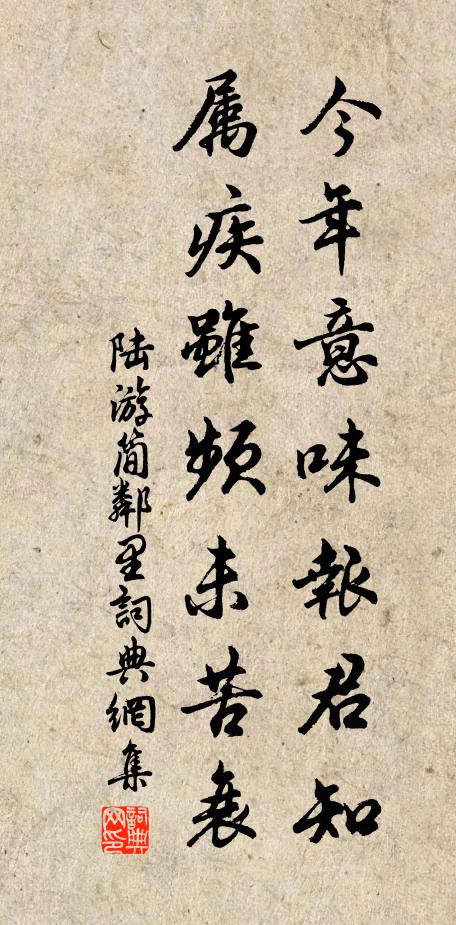 今年意味報君知
属疾雖頻未苦衰
陆游简鄰里詞典網集
詞典网印